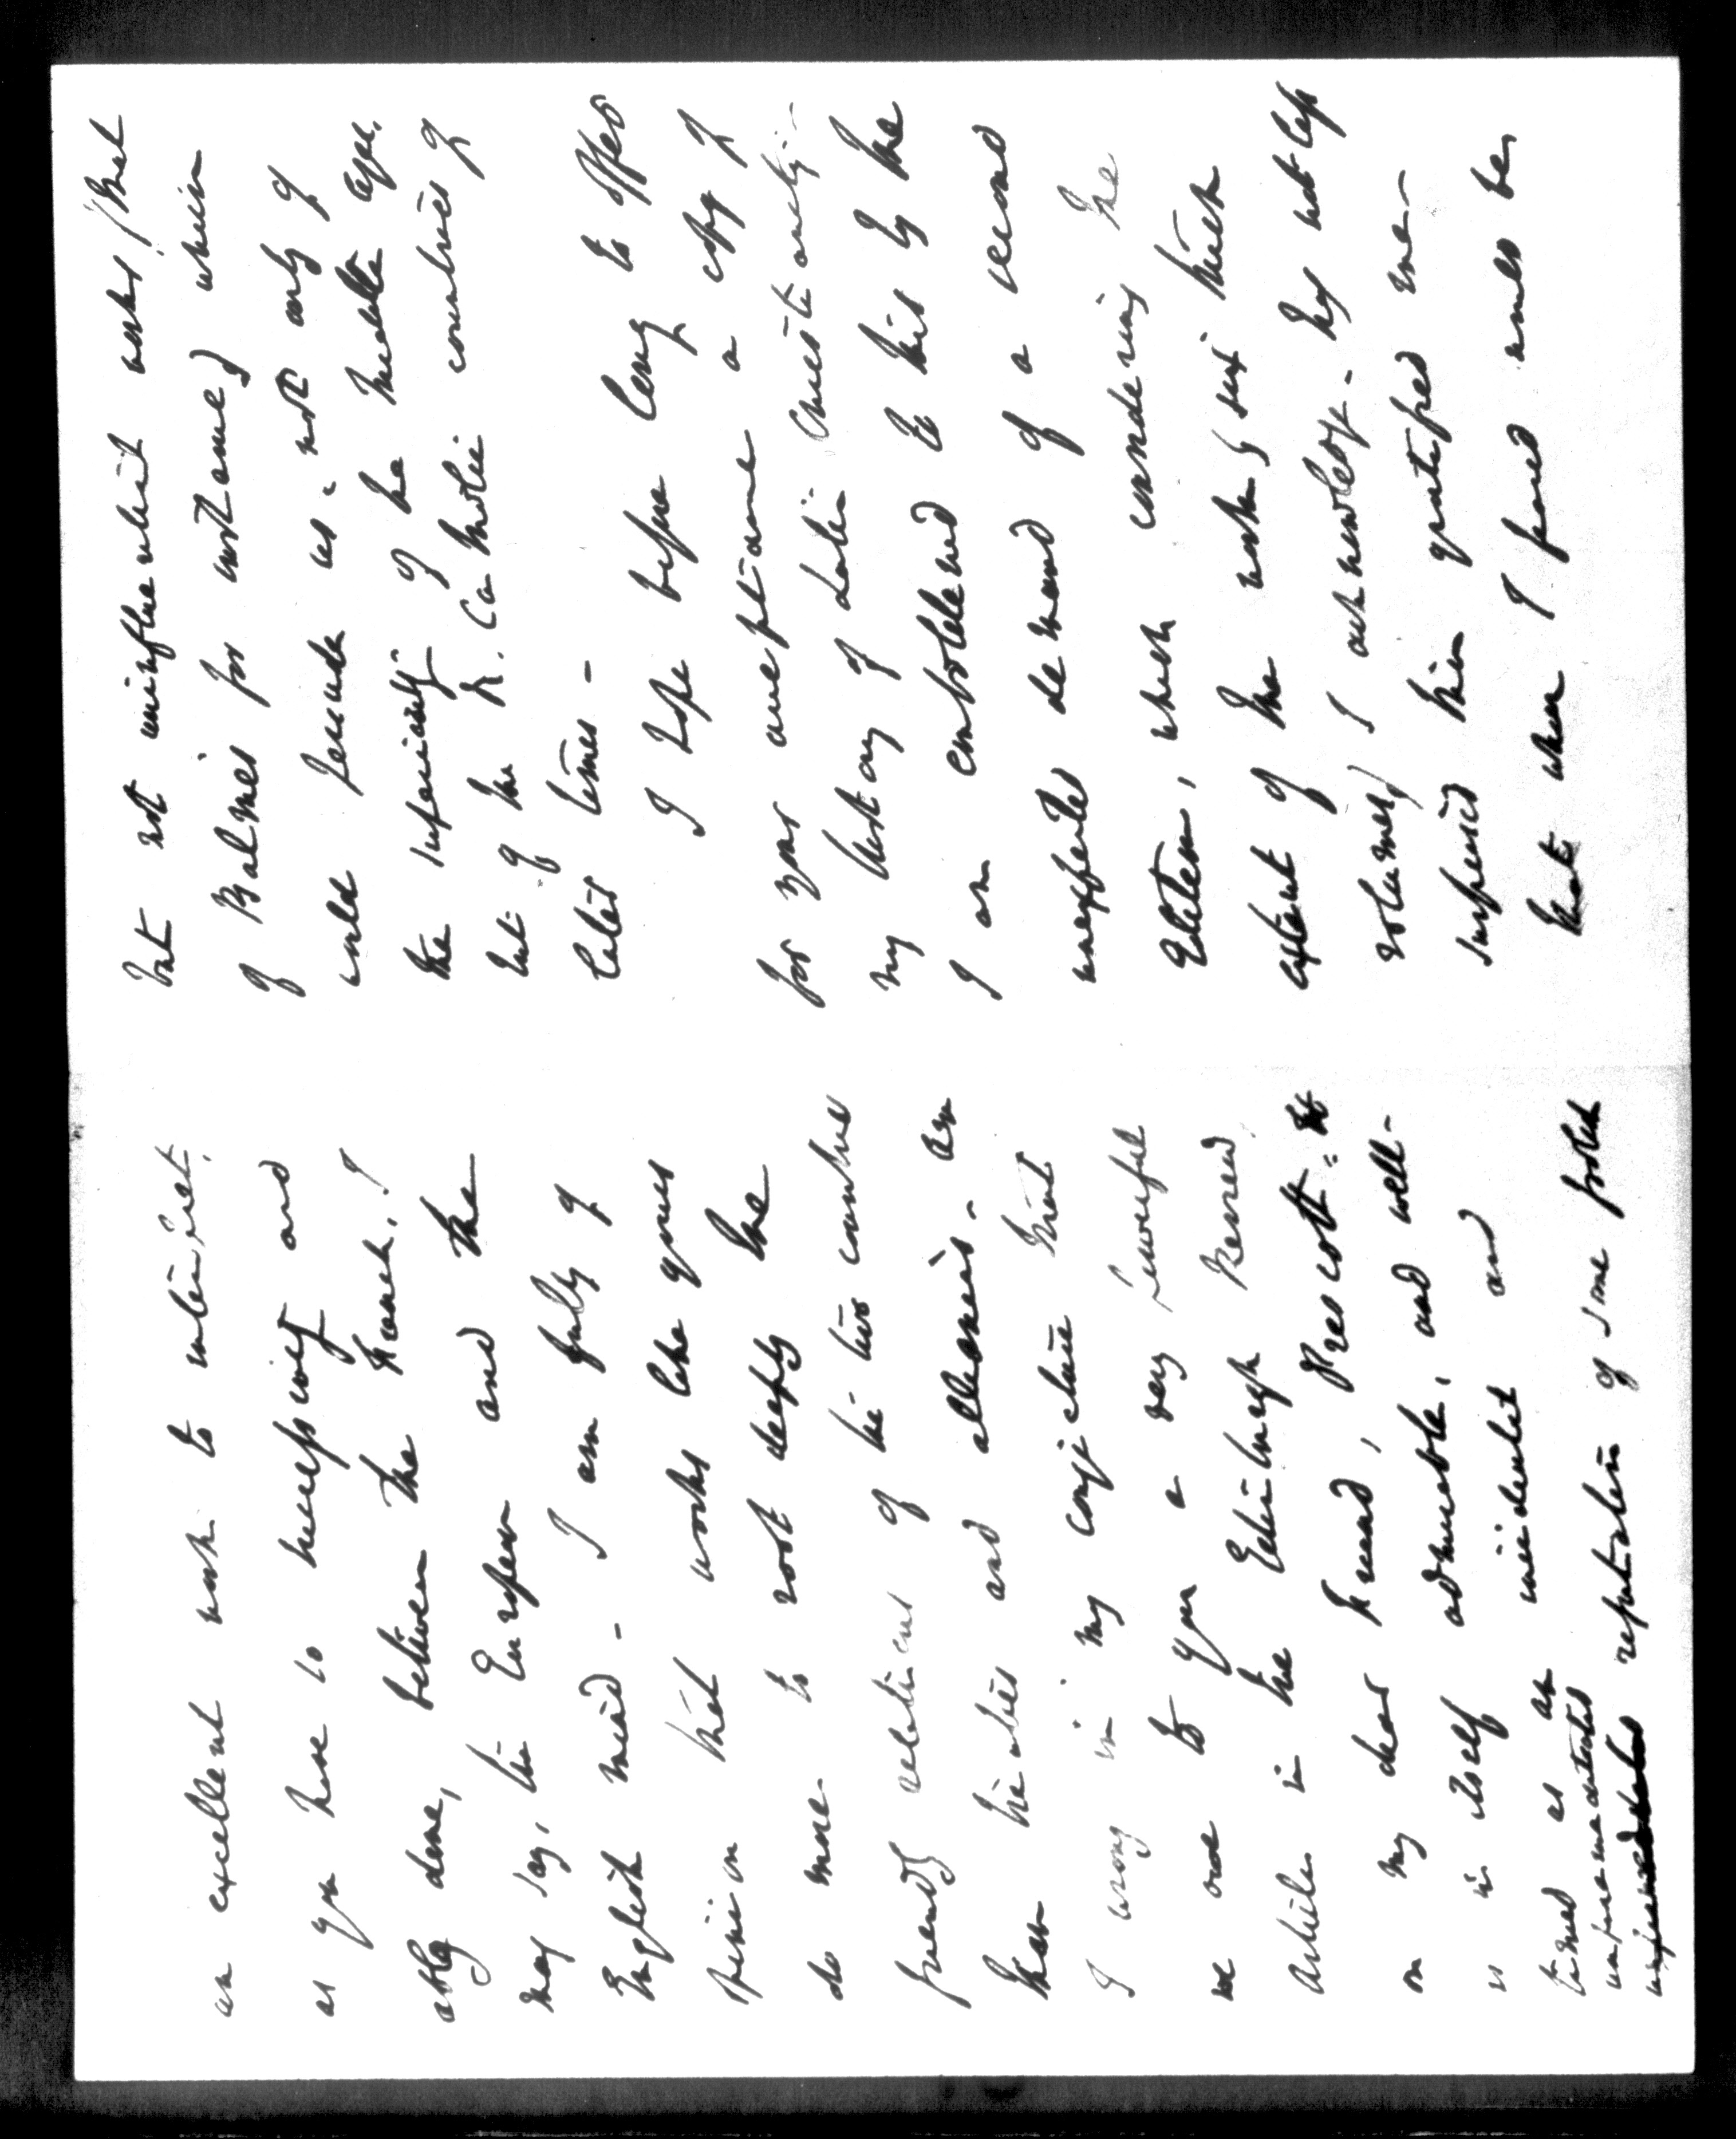 an excellent work to interpret,
as you have so successively and
ably done, between the French, I
may say, the European and the
English mind - I am fully of
opinion that works like yours
do more to root deeply the
friendly relations of the two countries
than treaties and alliances. Am
I wrong in my conjecture that
we owe to you a very powerful
Article in the Edinburgh Review
on my dear friend, Prescott: It
is in itself admirable, and well-
timed as an incidental and
unpremeditated refutation of some foolish
but not uninfluential works, (that
of Balmes for instance) which
would persuade us, not only of
the superiority of the Middle Ages,
but of the R. Catholic countries of
later times -
I hope before long to offer
for your acceptance a copy of
my history of Latin Christianity -
I am emboldened to this by the
unexpected demand of a second
Edition, which considering the
extent of the work, (six thick
volumes) I acknowledge has not less
surprised than gratified me -
But when I found